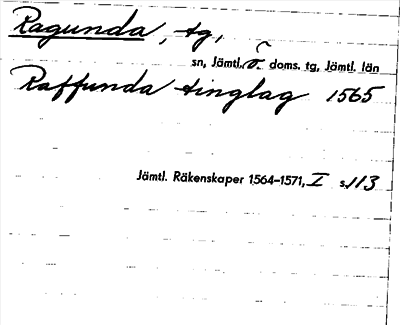 Ragunda, tg,
sn, Jämtl. ö. doms. tg, Jämtl. län
Raffunda tinglag 1565
Jämtl. Räkenskaper 1564–1571, I s. 113